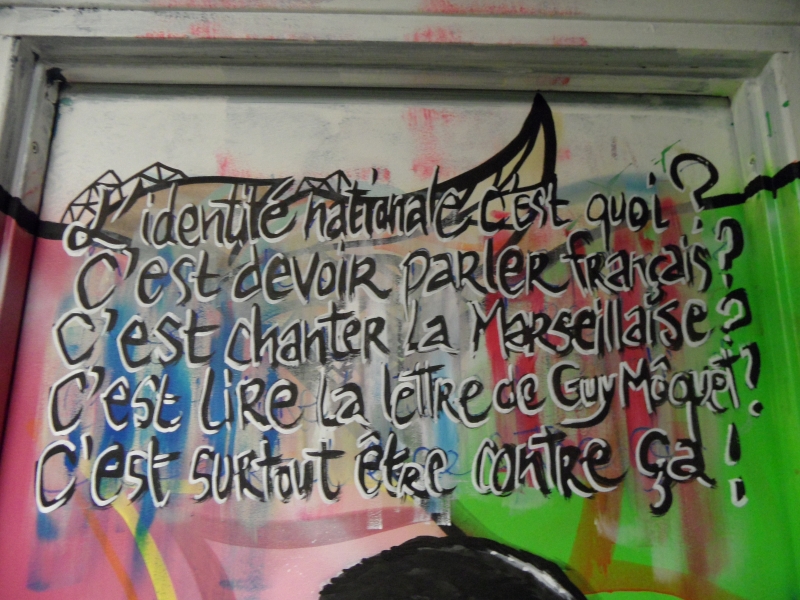 L'identité nationale c'est quoi ?
C'est devoir parler français ?
C'est chanter la Marseillaise ?
C'est lire la lettre de Guy Môquet ?
C'est surtout être contre ça !